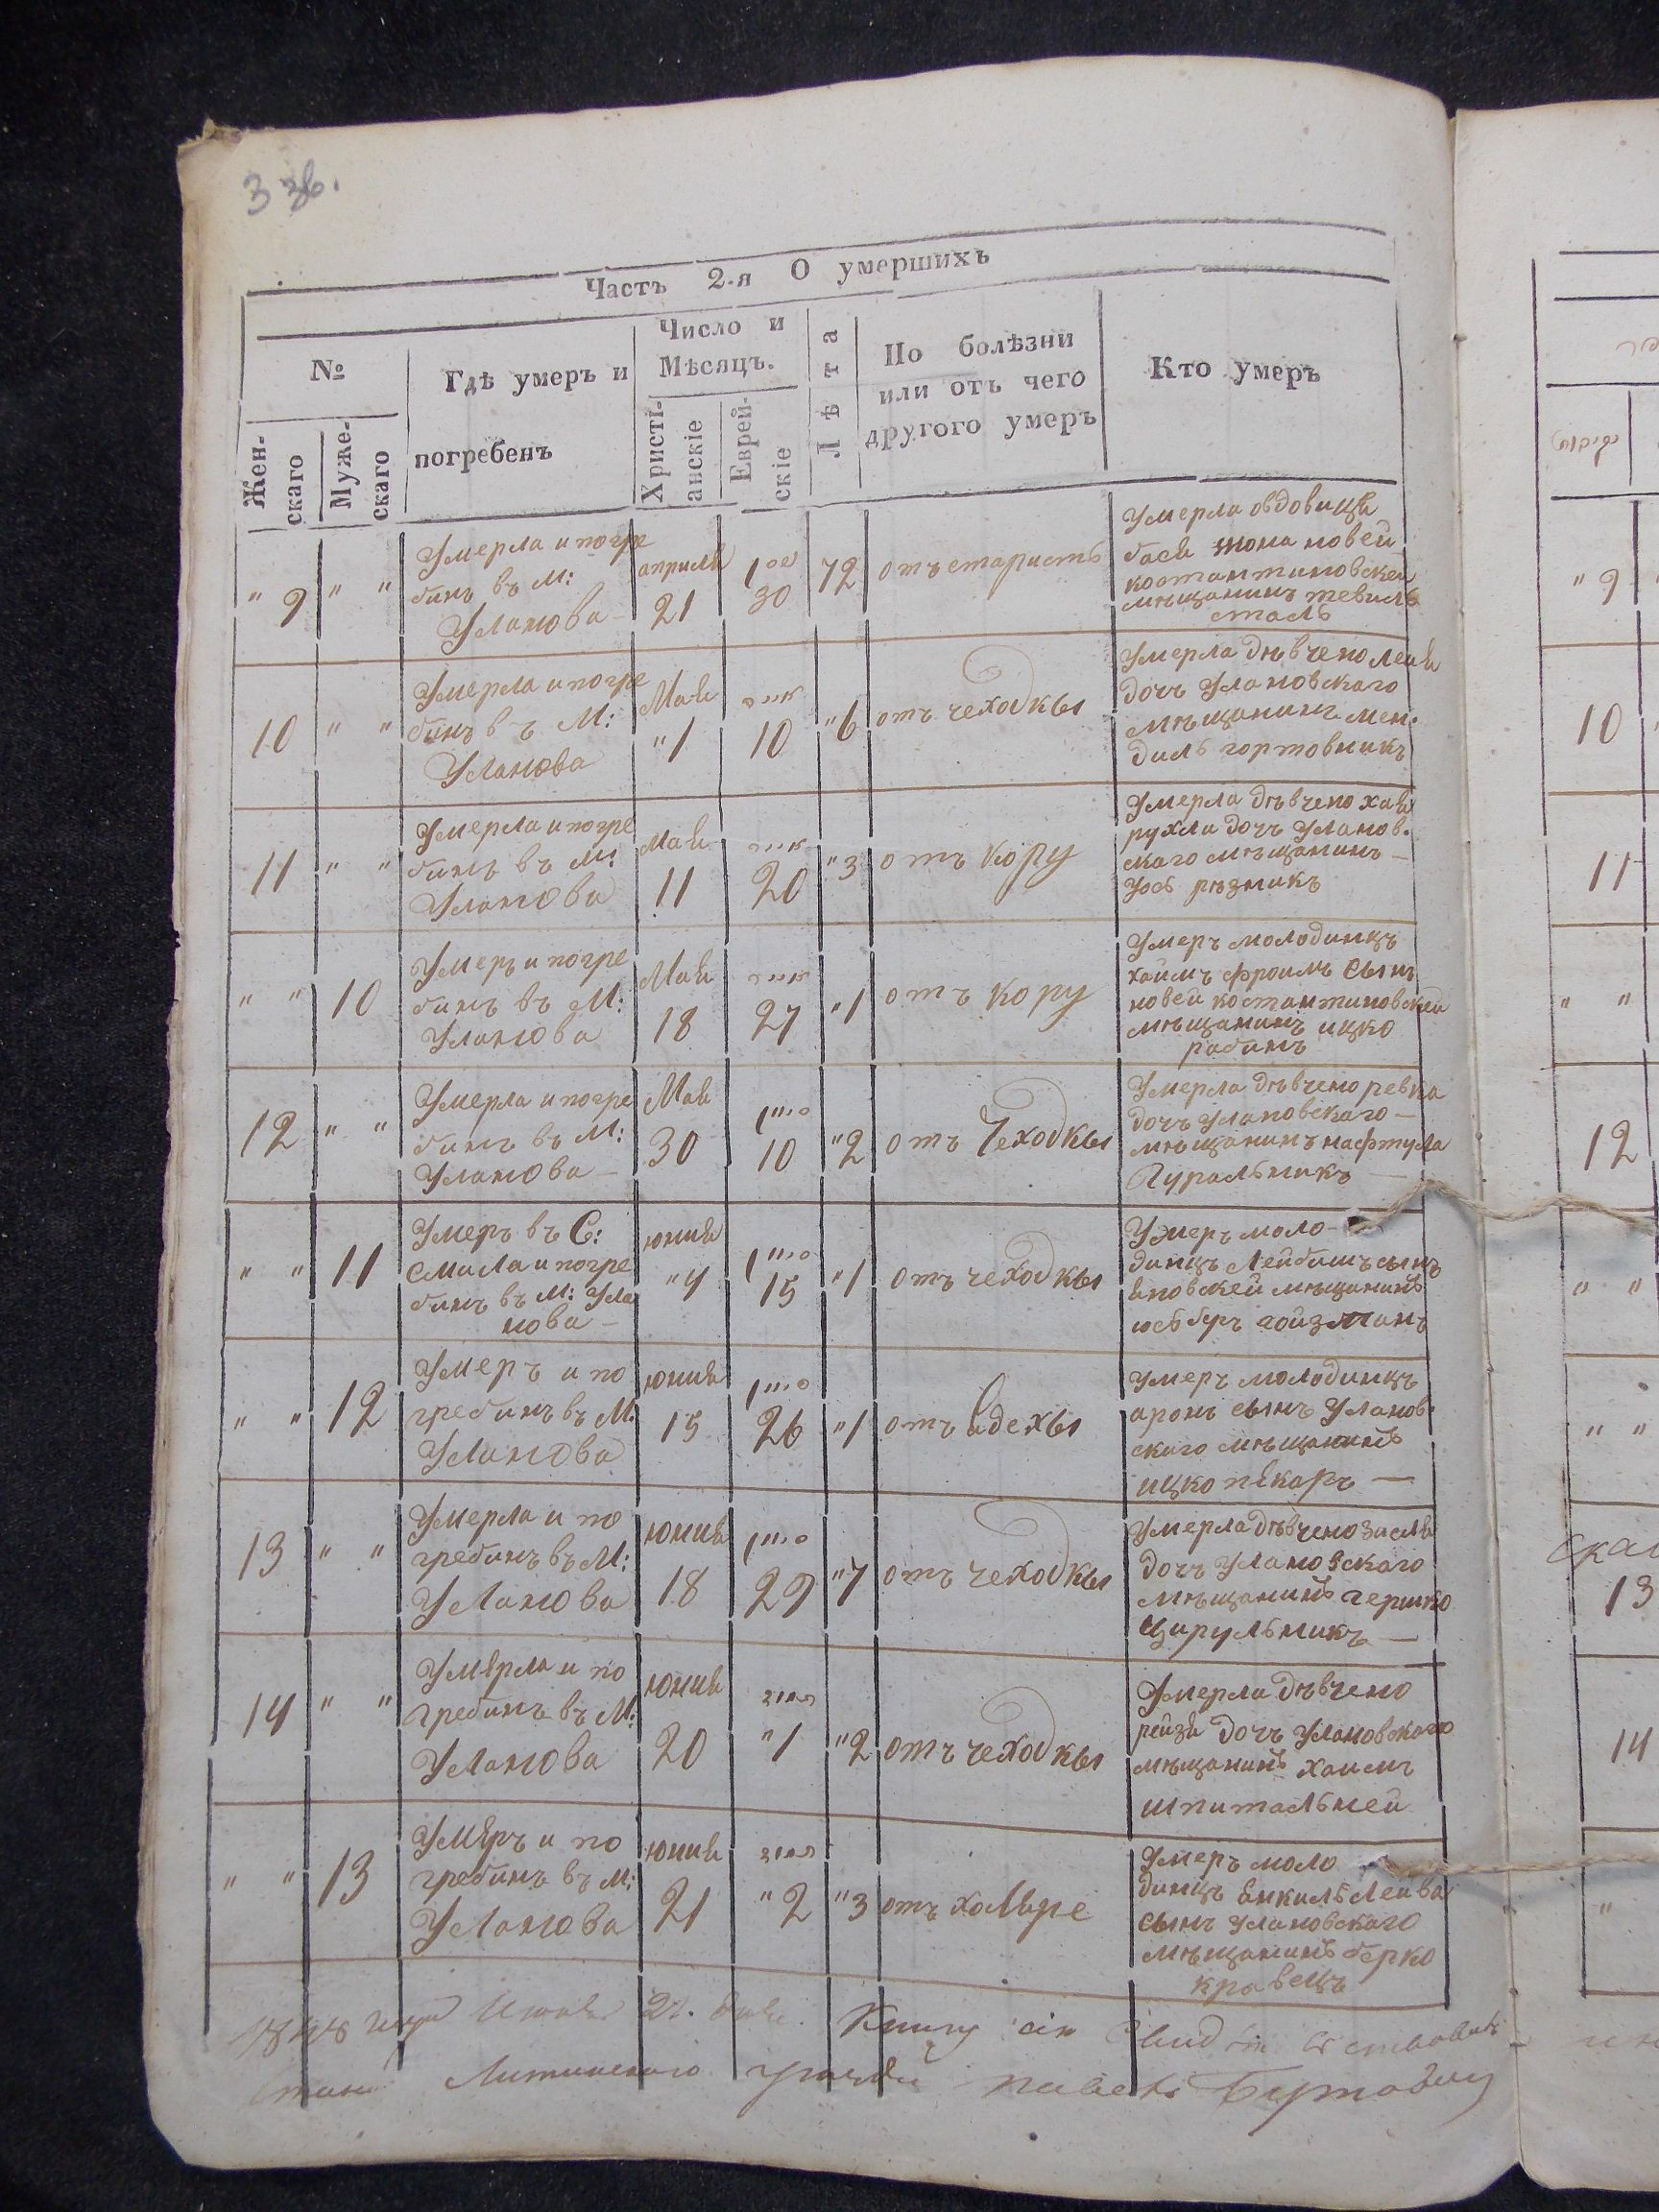 3 зв.
Часть 2-я О умершихъ
№
Женскаго
Мужескаго
Гдѣ умеръ и погребенъ
Число и Мѣсяцъ.
Христіанскіе
Еврейскіе
Лѣта
По болѣзни или отъ чего другого умеръ
Кто умеръ
" 9 " "
Умерла и погре
бинъ въ М:
Уланова
априля
21
ניסן
30
72
отъ старисть
Умерла овдовица
бася жона новей
костантиновскей
мѣщанинъ тевиль
сталь
10 " "
Умерла и погре
бинъ въ М:
Уланова
Мая
"1
אייר
10
"6
отъ чеходкы
Умерла дѣвчено леия
дочъ Улановскаго
мѣщанинъ мен.
диль гортовникъ
11 " "
Умерла и погре
бинъ въ М:
Уланова
Мая
11
אייר
20
"3
отъ кору
Умерла дѣвчено хая
рухля дочъ Уланов.
скаго мѣщанинъ
Уось рѣзникъ
" " 10
Умеръ и погре
бинъ въ М:
Уланова
Мая
18
אייר
27
"1
отъ кору
Умеръ молодинцъ
хаимъ фроимъ сынъ
новей костантиновскей
мѣщанинъ ицко
рабинъ
12 " "
Умерла и погре
бинъ въ М:
Уланова
Мая
30
סיון
10
"2
отъ Чеходкы
Умерла дѣвчено ревка
дочъ Улановскаго
мѣщанинъ нафтула
Гуральникъ
" " 11
Умеръ въ С:
Смила и погре
бинъ въ М: Ула
нова
юния
"4
סיון
15
"1
отъ чеходкы
Умеръ моло-
динцъ Лейбишъ сынъ
яновскей мѣщанинъ
юсь беръ ройзманъ
" " 12
Умеръ и по
гребинъ въ М.
Уланова
юния
15
סיון
26
"1
отъ ядехы
Умеръ молодинцъ
аронъ сынъ Уланов.
скаго мѣщанинъ
ицко пекаръ
13 " "
Умерла и по
гребинъ въ М:
Уланова
юния
18
סיון
29
"7
отъ чеходкы
Умерла дѣвчено зисля
дочъ Улановскаго
мѣщанинъ гершко
Цирульникъ
14 " "
Умерла и по
гребинъ въ М:
Уланова
юния
20
תמוז
"1
"2
отъ чеходкы
Умерла дѣвчено
рейзя дочъ Улановскаго
мѣщанинъ хаимъ
шпитальней
" " 13
Умеръ и по
гребинъ въ М:
Уланова
юния
21
תמוז
"2
"3
отъ холѣре
Умеръ моло
динцъ янкиль Лейба
сынъ Улановскаго
мѣщанинъ берко
кравецъ
1848 года Июня 27. дня. Книгу сію
Литинскаго уѣзда
9
10
11
" "
12
" "
" "
13
14
"